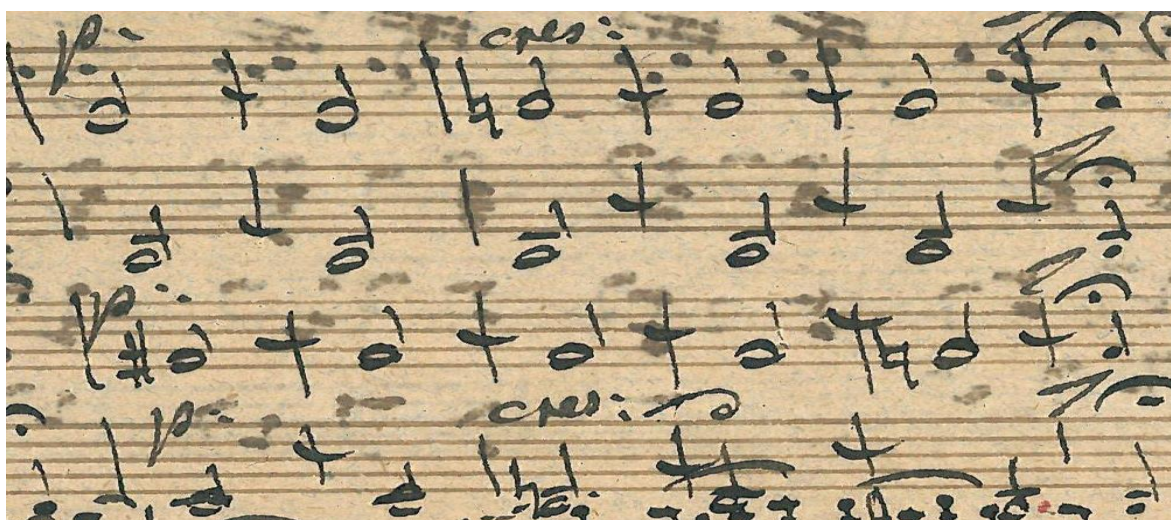 p: cres:
p:
p: cres: